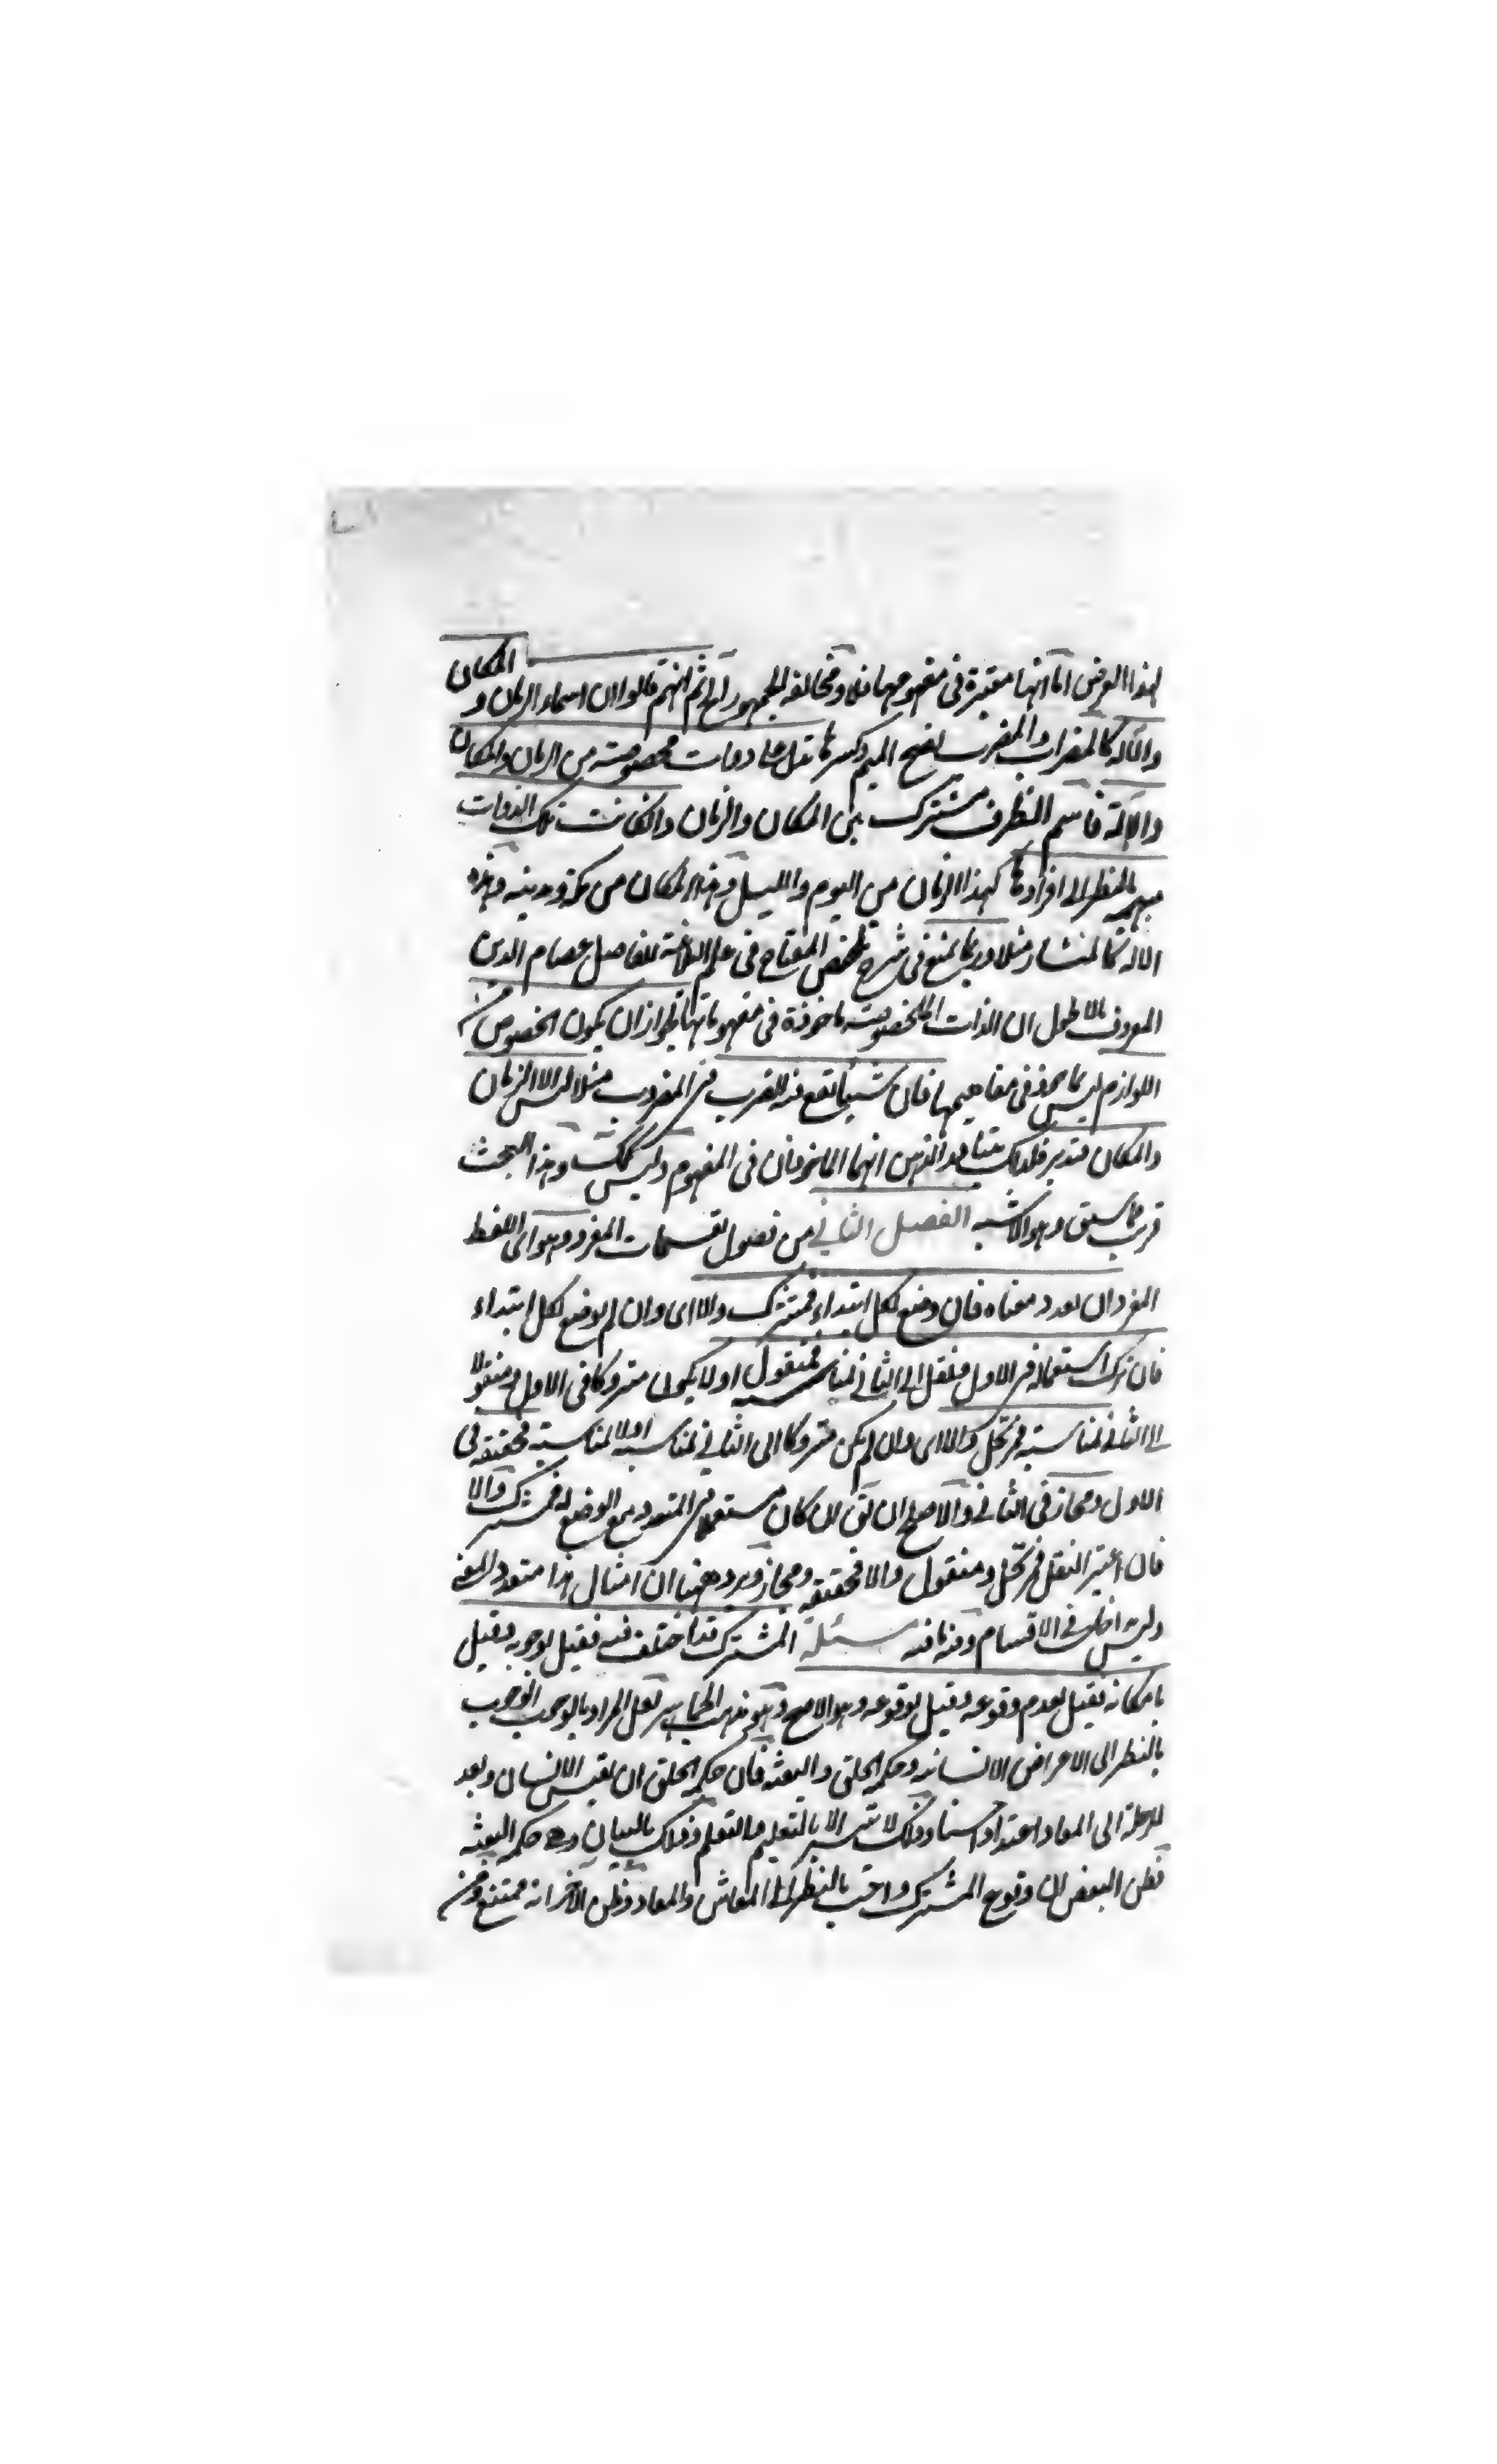 لهذا العرض اما انها معتبرة في مفهومها فلا ومخالفه للجمهور الخ ثم انهم قالوا ان اسماء الزمان و المكان
والآلة كالمضراب والمضرب بفتح الميم وكسرها تدل على ذوات مخصوصة من الزمان والمكان
والآلة فاسم الظرف مشترك بين المكان والزمان وانكانت تلك الذوات
مبهمة بالنظر الى افرادها كهذا الزمان من اليوم والليل وهذا المكان من مكة ومدينه وهذه
الاله كالمنشار مثلا وربما يمنع في شرح تلخيص المفتاح في علم البلاغة للفاضل عصام الدين
المعروف بالاطول ان الذات المخصوصة ماخوذة في مفهوماتها لجواز ان يكون الخصوص من
اللوازم ليس بماخوذ في مفاهيمها فان شيئا تقع فيه الضرب في المضرب مثلا ليس الا الزمان
والمكان فتدبر فلذلك يتبادر الذهن انهما الماخوذان في المفهوم وليس كك وهذا البحث
قريب مما سبق وهو الاشبه الفصل الثاني من فصول تقسيمات المفرد وهو اى اللفظ
المفرد ان تعدد معناه فان وضع لكل ابتداء فمشترك والا اى وان لم يوضع لكل ابتداء
فان ترك استعماله في الاول ونقل الى الثاني لمناسبة فمنقول او لا يكون متروكا في الاول ومنقولا
الى الثاني لمناسبة فمرتجل والا اى وان لم يكن متروكا الى الثاني لمناسبة او لا لمناسبة فحقيقة في
الاول ومجاز في الثاني والاصلح ان يق ان كان مستعملا في المتعدد مع الوضع له فمشترك والا
فان اعتبر النقل فمرتجل ومنقول والا فحقيقة ومجاز ويرد ههنا ان امثال هذا متعدد المعنى
وليس داخل في الاقسام وفيه ما فيه مسئلة المشترك قد اختلف فيه فقيل بوجوبه وقيل
بامكانه فقيل بعدم وقوعه وقيل بوقوعه وهو الاصح وهو مذهب الجماهير لعل المراد بالوجوب الوجوب
بالنظر الى الاعراض الانسانيه وحكمة الخلق والبعثه فان حكمة الخلق ان يقيس الانسان وبعد
للرحلة الى المعاد اعتدادا حسنا وذلك لا يتيسر الا بالتعليم والتعلم وذلك بالبيان وهي حكمة البعثه
فظن البعض ان وقوع المشترك واجب بالنظر الى المعاش والمعاد وظن الآخر انه ممتنع ومن